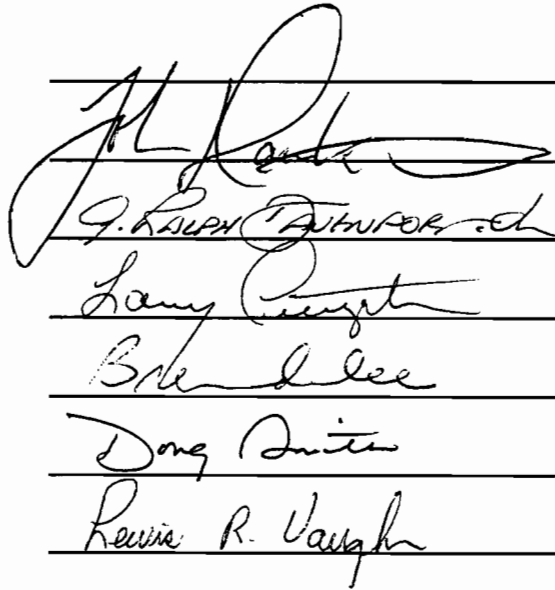 John
G. Ralph Davenport
Larry
Brenda Lee
Doug Smith
Lewis R. Vaughn